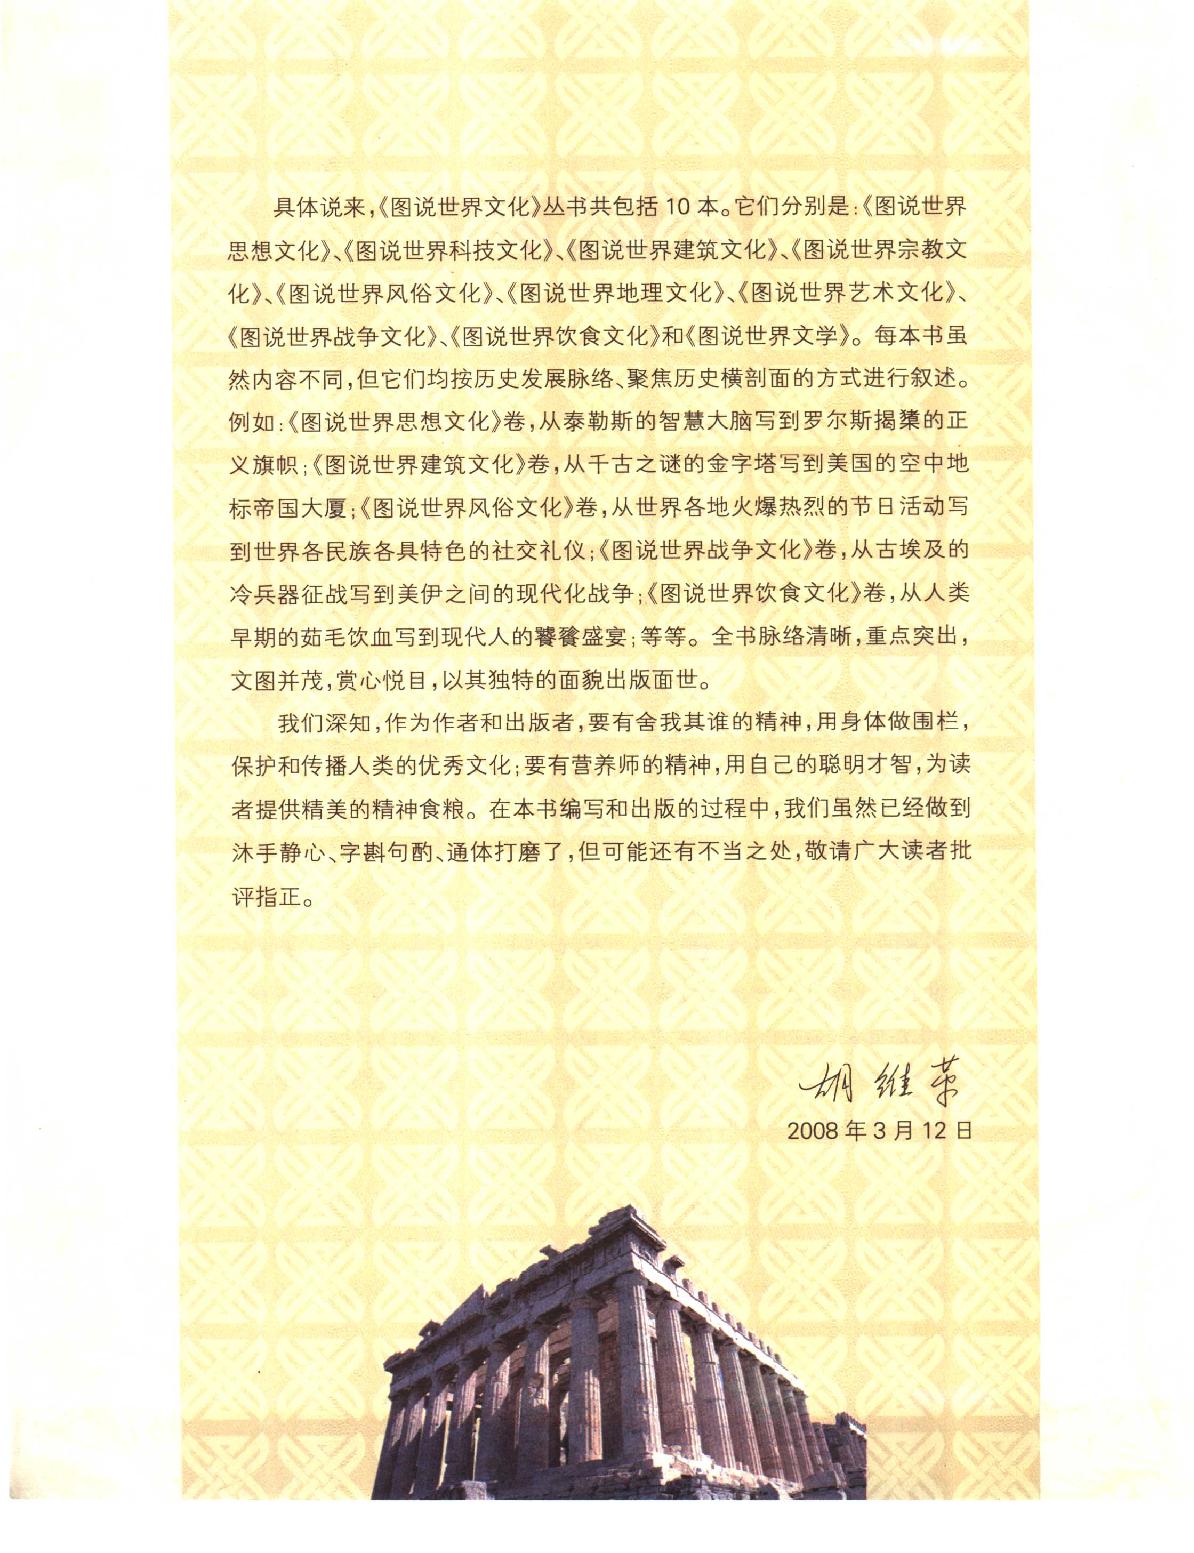 具体说来,《图说世界文化》丛书共包括 10 本。它们分别是:《图说世界
思想文化》、《图说世界科技文化》、《图说世界建筑文化》、《图说世界宗教文
化》、《图说世界风俗文化》、《图说世界地理文化》、《图说世界艺术文化》、
《图说世界战争文化》、《图说世界饮食文化》和《图说世界文学》。每本书虽
然内容不同,但它们均按历史发展脉络、聚焦历史横剖面的方式进行叙述。
例如:《图说世界思想文化》卷,从泰勒斯的智慧大脑写到罗尔斯揭橥的正
义旗帜;《图说世界建筑文化》卷,从千古之谜的金字塔写到美国的空中地
标帝国大厦;《图说世界风俗文化》卷,从世界各地火爆热烈的节日活动写
到世界各民族各具特色的社交礼仪;《图说世界战争文化》卷,从古埃及的
冷兵器征战写到美伊之间的现代化战争;《图说世界饮食文化》卷,从人类
早期的茹毛饮血写到现代人的饕餮盛宴;等等。全书脉络清晰,重点突出,
文图并茂,赏心悦目,以其独特的面貌出版面世。
我们深知,作为作者和出版者,要有舍我其谁的精神,用身体做围栏,
保护和传播人类的优秀文化;要有营养师的精神,用自己的聪明才智,为读
者提供精美的精神食粮。在本书编写和出版的过程中,我们虽然已经做到
沐手静心、字斟句酌、通体打磨了,但可能还有不当之处,敬请广大读者批
评指正。
胡维革
2008 年 3 月 12 日